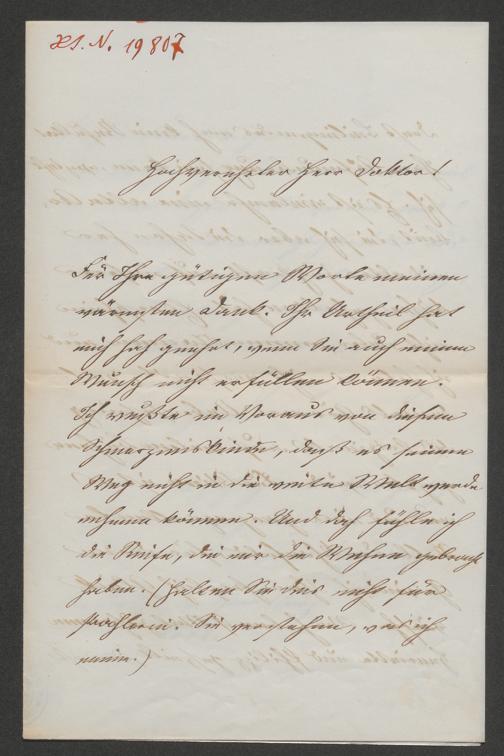 H.I.N. 19807
Hochverehrter Herr Doktor!
Für Ihre gütigen Worte meinen
wärmsten Dank. Ihr Urtheil hat
mich hoch geehrt, wenn Sie auch meinen
Wunsch nicht erfüllen können.
Ich wußte im Voraus von diesem
Schmerzenskinde, daß es seinen
Weg nicht in die weite Welt werde
nehmen können. Und doch fühle ich
die Reife, die mir die Wehen gebracht
haben. (Halten Sie dies nicht für
Prahlerei. Sie verstehen, was ich
meine.)